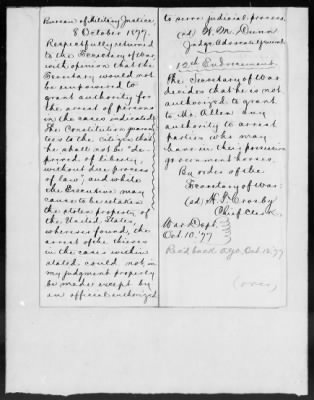 Bureau of Military Justice,
8 October 1877.
Respectfully returned
to the Secretary of War
with opinion that the
Secretary would not
be empowered to
grant authority for
the arrest of persons
in the cases indicated.
The Constitution guaran-
tees to the citizen that
he shall not be "de-
prived of liberty
without due process
of law", and while
the Executive may
cause to be retaken
the stolen property of
the United States,
wherever found, the
arrest of the thieves
in the cases within
stated could not, in
my judgment properly
be made except by
an official authorized
to serve judicial process.
(sd) W. M. Dunn
Judge Advocate General.
12th Endorsement.
The Secretary of War
decides that he is not
authorized to grant
to Mr. Allen any
authority to arrest
parties who may
have in their possession
government horses.
By order of the
Secretary of War.
(sd) H. T. Crosby
Chief Clerk
War Dept.
Oct. 10. '77
Rec'd back AGO, Oct. 12 '77
(over)